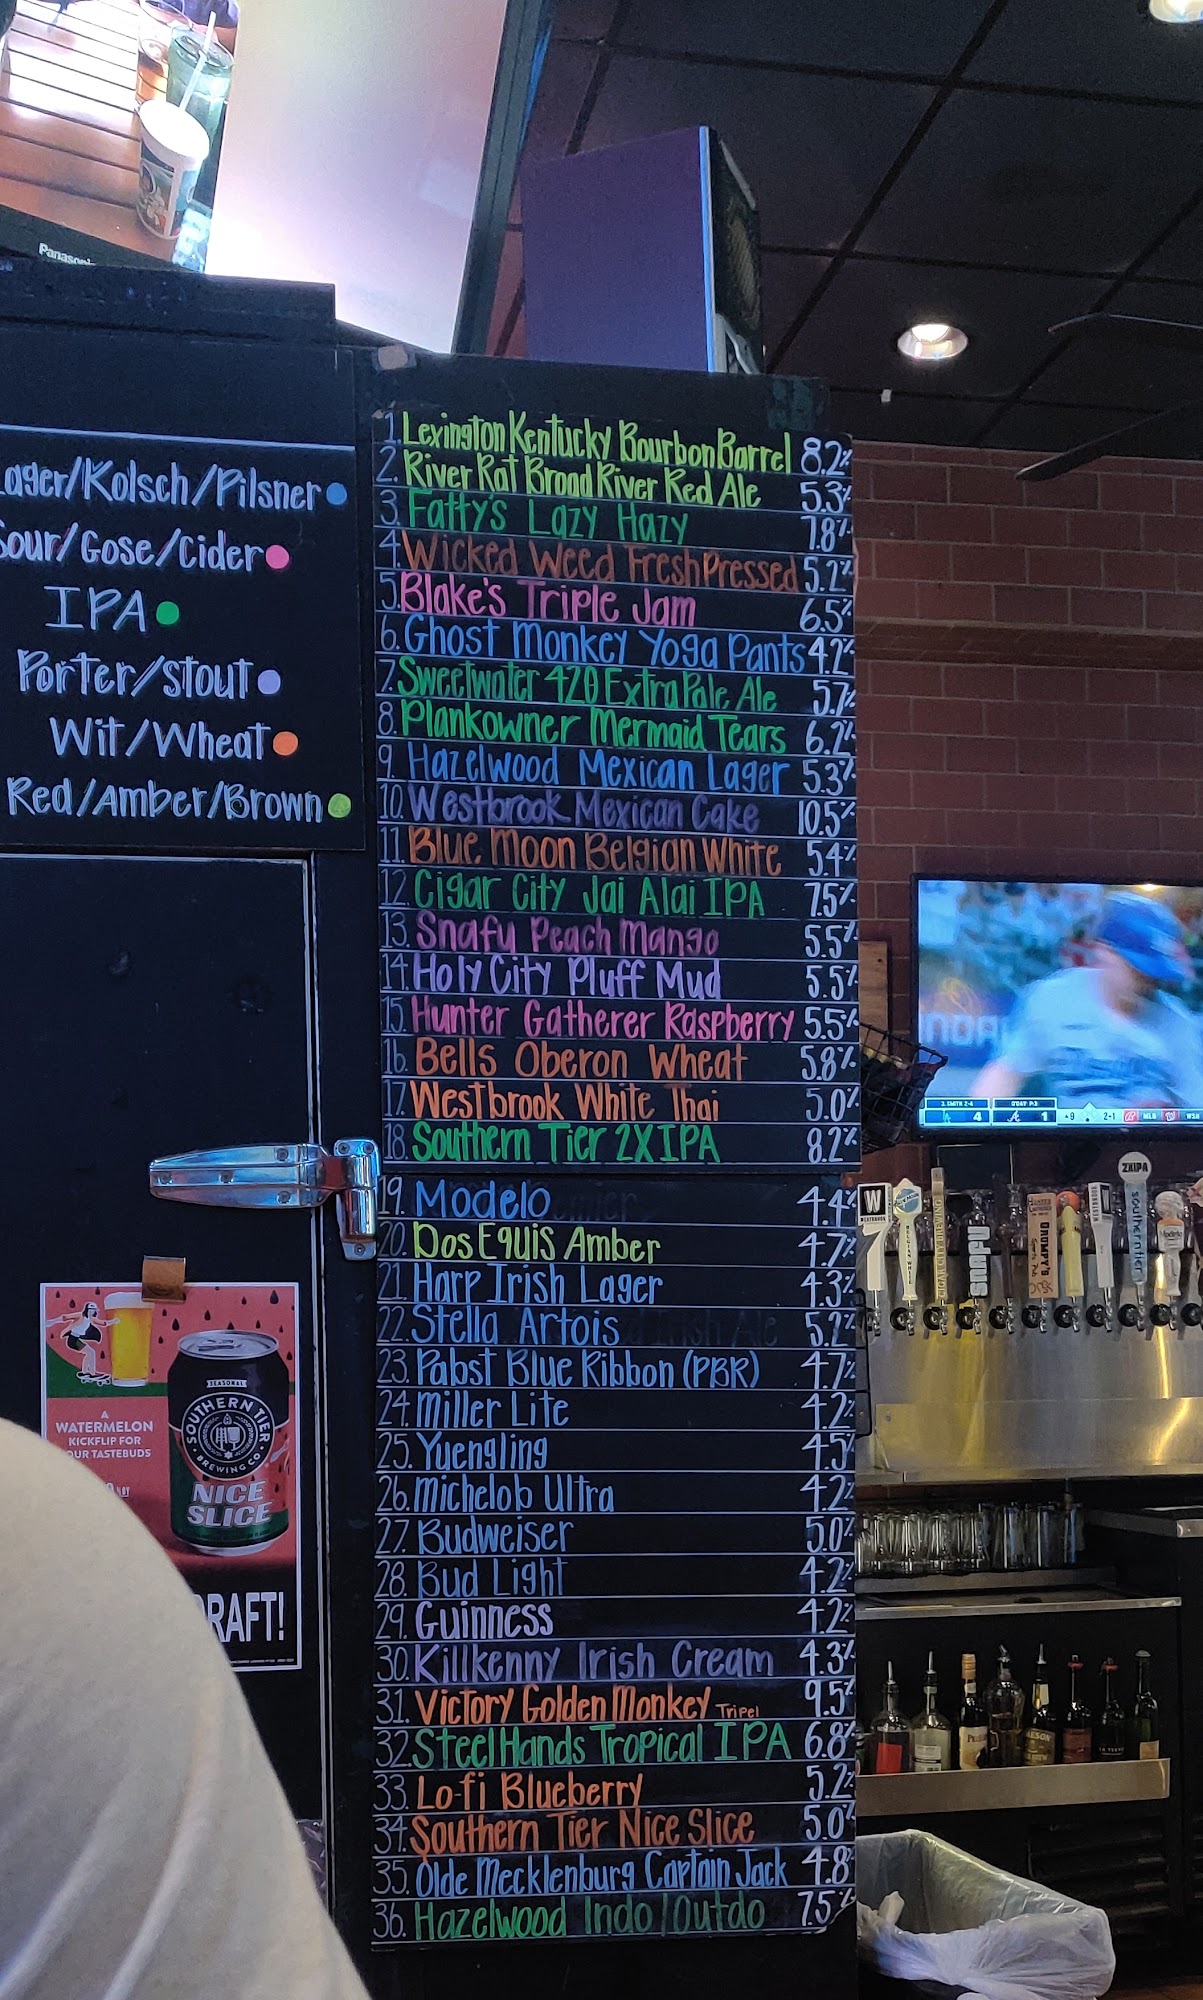 Panasonic
Lager/Kolsch/Pilsner
Sour/Gose/Cider
IPA
Porter/Stout
Wit/Wheat
Red/Amber/Brown
1. Lexington Kentucky Bourbon Barrel 8.2%
2. River Rat Broad River Red Ale 5.3%
3. Fatty's Lazy Hazy 7.8%
4. Wicked Weed Fresh Pressed 5.2%
5. Blake's Triple Jam 6.5%
6. Ghost Monkey Yoga Pants 4.2%
7. Sweetwater 420 Extra Pale Ale 5.7%
8. Plankowner Mermaid Tears 6.2%
9. Hazelwood Mexican Lager 5.3%
10. Westbrook Mexican Cake 10.5%
11. Blue Moon Belgian White 5.4%
12. Cigar City Jai Alai IPA 7.5%
13. Snafu Peach Mango 5.5%
14. Holy City Pluff Mud 5.5%
15. Hunter Gatherer Raspberry 5.5%
16. Bells Oberon Wheat 5.8%
17. Westbrook White Thai 5.0%
18. Southern Tier 2XIPA 8.2%
19. Modelo 4.4%
20. Dos Equis Amber 4.7%
21. Harp Irish Lager 4.3%
22. Stella Artois 5.2%
23. Pabst Blue Ribbon (PBR) 4.7%
24. Miller Lite 4.2%
25. Yuengling 4.5%
26. Michelob Ultra 4.2%
27. Budweiser 5.0%
28. Bud Light 4.2%
29. Guinness 4.2%
30. Killkenny Irish Cream 4.3%
31. Victory Golden Monkey Tripel 9.5%
32. Steel Hands Tropical IPA 6.8%
33. Lo-fi Blueberry 5.2%
34. Southern Tier Nice Slice 5.0%
35. Olde Mecklenburg Captain Jack 4.8%
36. Hazelwood Indo/Outdo 7.5%
A
WATERMELON
KICKFLIP FOR
OUR TASTEBUDS
SEASONAL
SOUTHERN TIER
BREWING CO
NICE
SLICE
RAFT!
4
1
9
2-1
MLB
WSH
W
SNAFU
GRUMPY'S
2XIPA
southern tier
Modelo